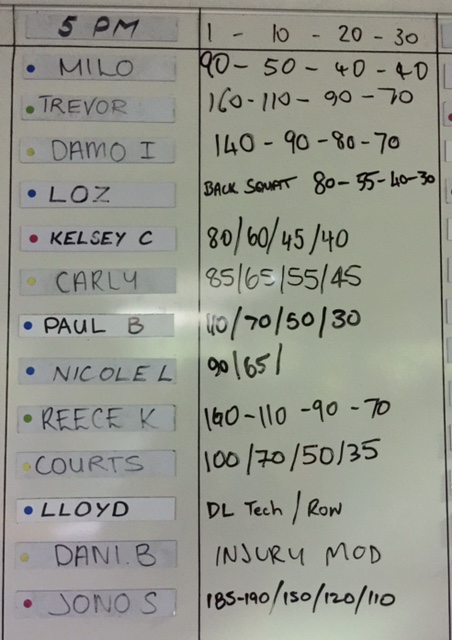 5 PM 1 - 10 - 20 - 30
MILO 90 - 50 - 40 - 40
TREVOR 160 - 110 - 90 - 70
DAMO I 140 - 90 - 80 - 70
LOZ BACK SQUAT 80 - 55 - 40 - 30
KELSEY C 80/60/45/40
CARLY 85/65/55/45
PAUL B 110/70/50/30
NICOLE L 90/65/
REECE K 160 - 110 - 90 - 70
COURTS 100/70/50/35
LLOYD DL Tech / Row
DANI.B INJURY MOD
JONO S 185-190/150/120/110